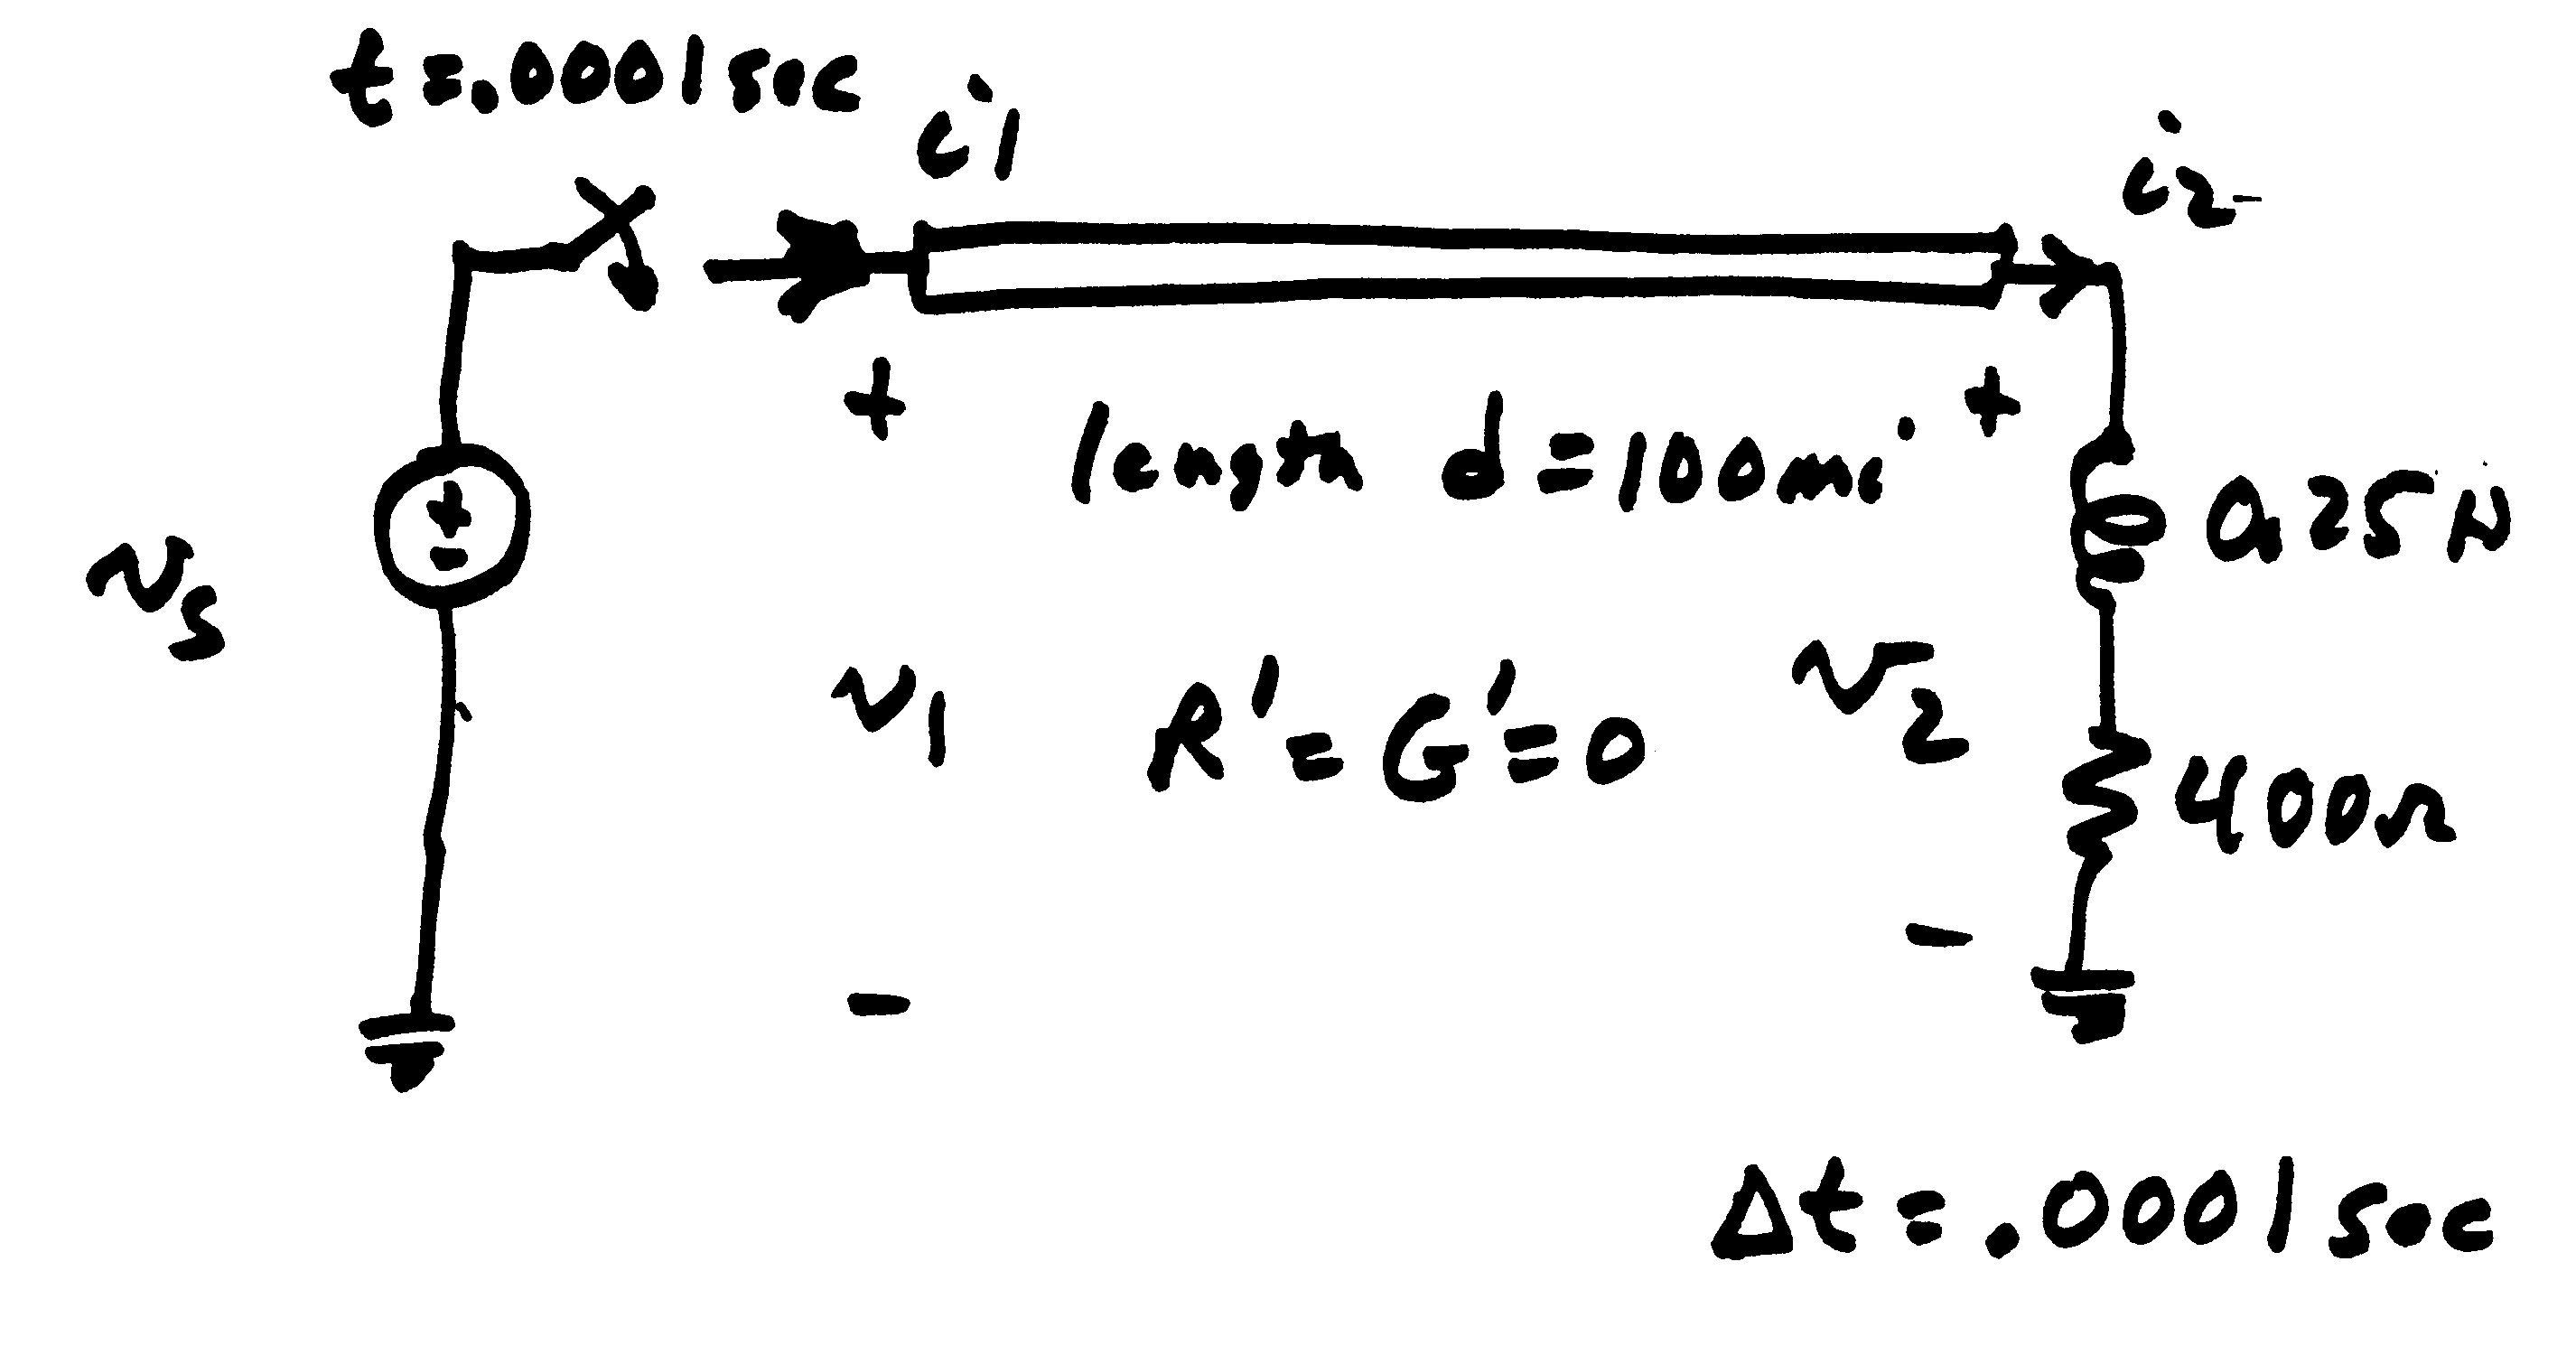 t=.0001sec
i1
i2
+
length d=100mi
+
+
-
0.25H
vs
v1
R'=G'=0
v2
400Ω
-
-
Δt=.0001sec